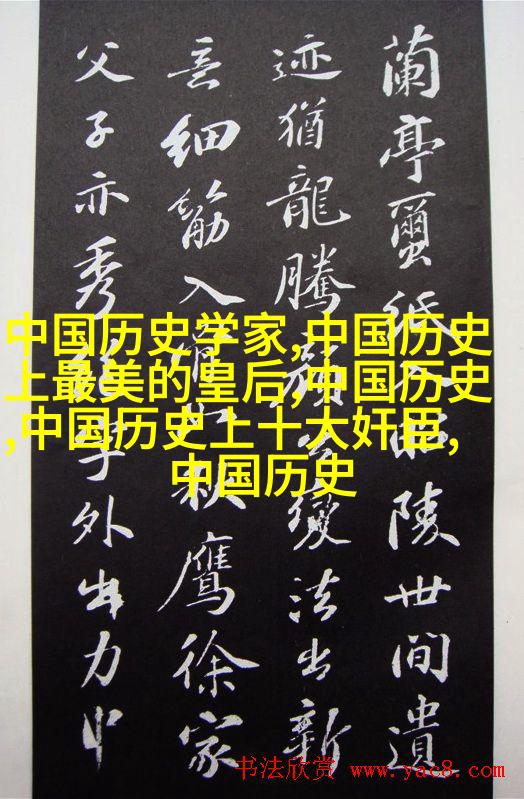 中国历史学家,中国历史
上最美的皇后,中国历史
,中国历史上十大奸臣,
中国历史
蘭亭蠒紙入昭陵世間遺
迹猶龍騰顏公變法出新
意細筋入骨如秋鷹徐家
父子亦秀絕字外出力中
书法欣赏 www.yac8.com